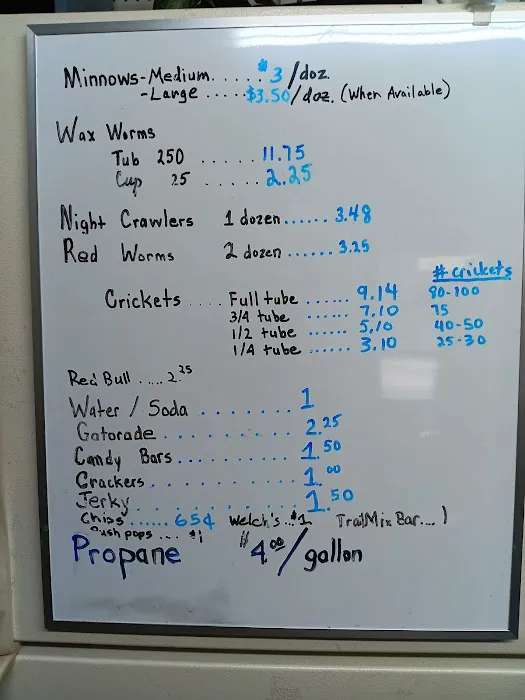 Minnows-Medium.....$3/doz.
-Large.....$3.50/doz. (When Available)
Wax Worms
Tub 250 ...... 11.75
Cup 25 ...... 2.25
Night Crawlers 1 dozen...... 3.48
Red Worms 2 dozen...... 3.25
# crickets
Crickets .... Full tube ...... 9.14 80-100
3/4 tube ...... 7.10 75
1/2 tube ...... 5.10 40-50
1/4 tube ...... 3.10 25-30
Red Bull .....2.25
Water / Soda ........ 1
Gatorade .......... 2.25
Candy Bars......... 1.50
Crackers.......... 1.00
Jerky.......... 1.50
Chips...... 65¢ Welch's..$1 Trail Mix Bar....1
push pops ... $1
Propane $4.00/gallon